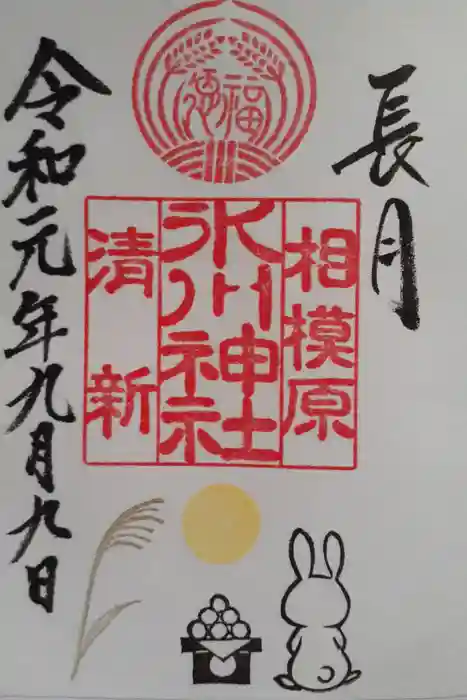 長月
福
相模原
氷川神社
清新
令和元年九月九日